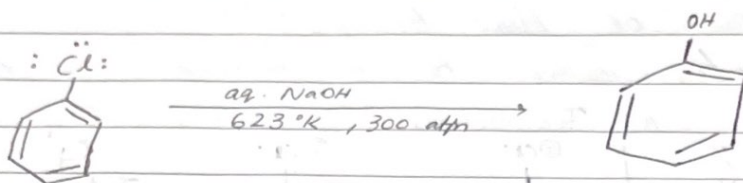 OH
: C̈l:
aq. NaOH
623°K , 300 atm